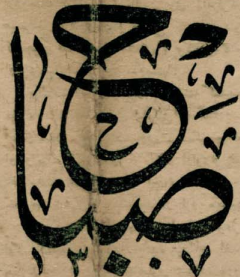 صباح
١٣٠٧